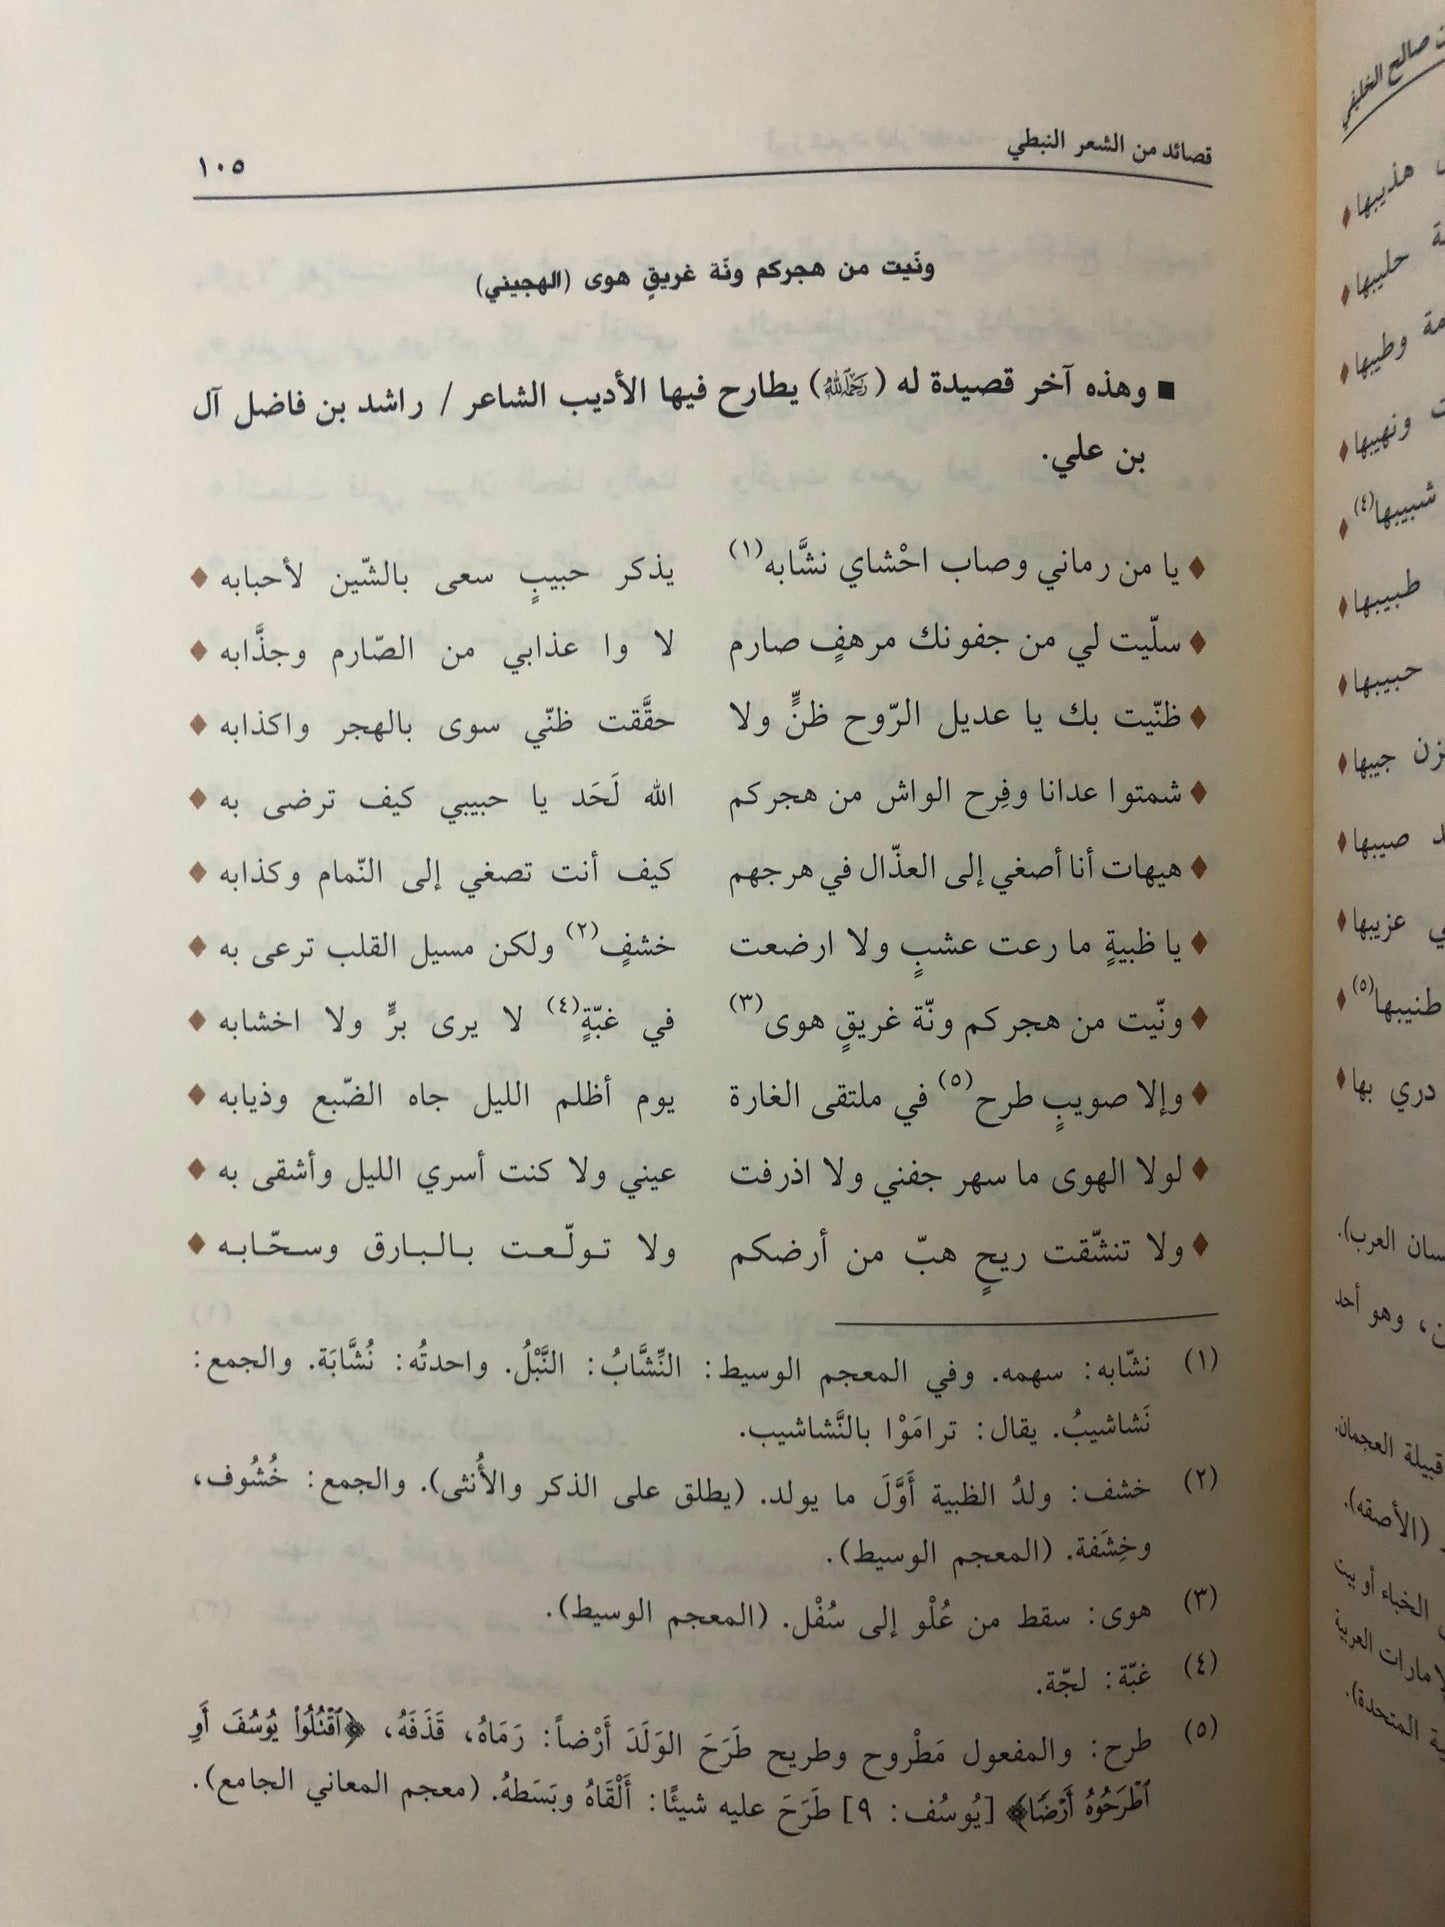 قصائد من الشعر النبطي ١٠٥
ونَيت من هجركم ونَة غريقٍ هوى (الهجيني)
■ وهذه آخر قصيدة له (رَحِمَهُ ٱللَّهُ) يطارح فيها الأديب الشاعر / راشد بن فاضل آل
بن علي.
♦ يا من رماني وصاب احْشاي نشَّابه(١) يذكر حبيبٍ سعى بالشّين لأحبابه ♦
♦ سلّيت لي من جفونك مرهفٍ صارم لا وا عذابي من الصّارم وجذَّابه ♦
♦ ظنّيت بك يا عديل الرّوح ظنٍّ ولا حقَّقت ظنّي سوى بالهجر واكذابه ♦
♦ شمتوا عدانا وفِرح الواش من هجركم الله لَحَد يا حبيبي كيف ترضى به ♦
♦ هيهات أنا أصغي إلى العذّال في هرجهم كيف أنت تصغي إلى النّمام وكذابه ♦
♦ يا ظبيةٍ ما رعت عشبٍ ولا ارضعت خشفٍ(٢) ولكن مسيل القلب ترعى به ♦
♦ ونّيت من هجركم ونّة غريقٍ هوى(٣) في غبّةٍ(٤) لا يرى برٍّ ولا اخشابه ♦
♦ وإلا صويبٍ طرح(٥) في ملتقى الغارة يوم أظلم الليل جاه الضّبع وذيابه ♦
♦ لولا الهوى ما سهر جفني ولا اذرفت عيني ولا كنت أسري الليل وأشقى به ♦
♦ ولا تنشّقت ريحٍ هبّ من أرضكم ولا تولّعت بالبارق وسحّابه ♦
(١) نشّابه: سهمه. وفي المعجم الوسيط: النِّشَّابُ: النَّبْلُ. واحدتُه: نُشَّابَة. والجمع:
نَشاشيبُ. يقال: ترامَوْا بالنَّشاشيب.
(٢) خشف: ولدُ الظبية أَوَّلَ ما يولد. (يطلق على الذكر والأُنثى). والجمع: خُشُوف،
وخِشَفة. (المعجم الوسيط).
(٣) هوى: سقط من عُلْو إلى سُفْل. (المعجم الوسيط).
(٤) غبّة: لجّة.
(٥) طرح: والمفعول مَطْروح وطريح طَرَحَ الوَلَدَ أَرْضاً: رَمَاهُ، قَذَفَهُ، ﴿ٱقْتُلُوا۟ يُوسُفَ أَوِ
ٱطْرَحُوهُ أَرْضًا﴾ [يُوسُف: ٩] طَرَحَ عليه شيئًا: أَلْقَاهُ وبَسَطهُ. (معجم المعاني الجامع).
صالح الخليفي
هذيبها ♦
حليبها ♦
وطيبها ♦
ونهيبها ♦
شبيبها(٤) ♦
طبيبها ♦
حبيبها ♦
جيبها ♦
صيبها ♦
عزيبها ♦
طنيبها(٥) ♦
دري بها ♦
العرب).
وهو أحد
قبيلة العجمان.
(الأصقه).
الخباء أو بيت
العربية
المتحدة).